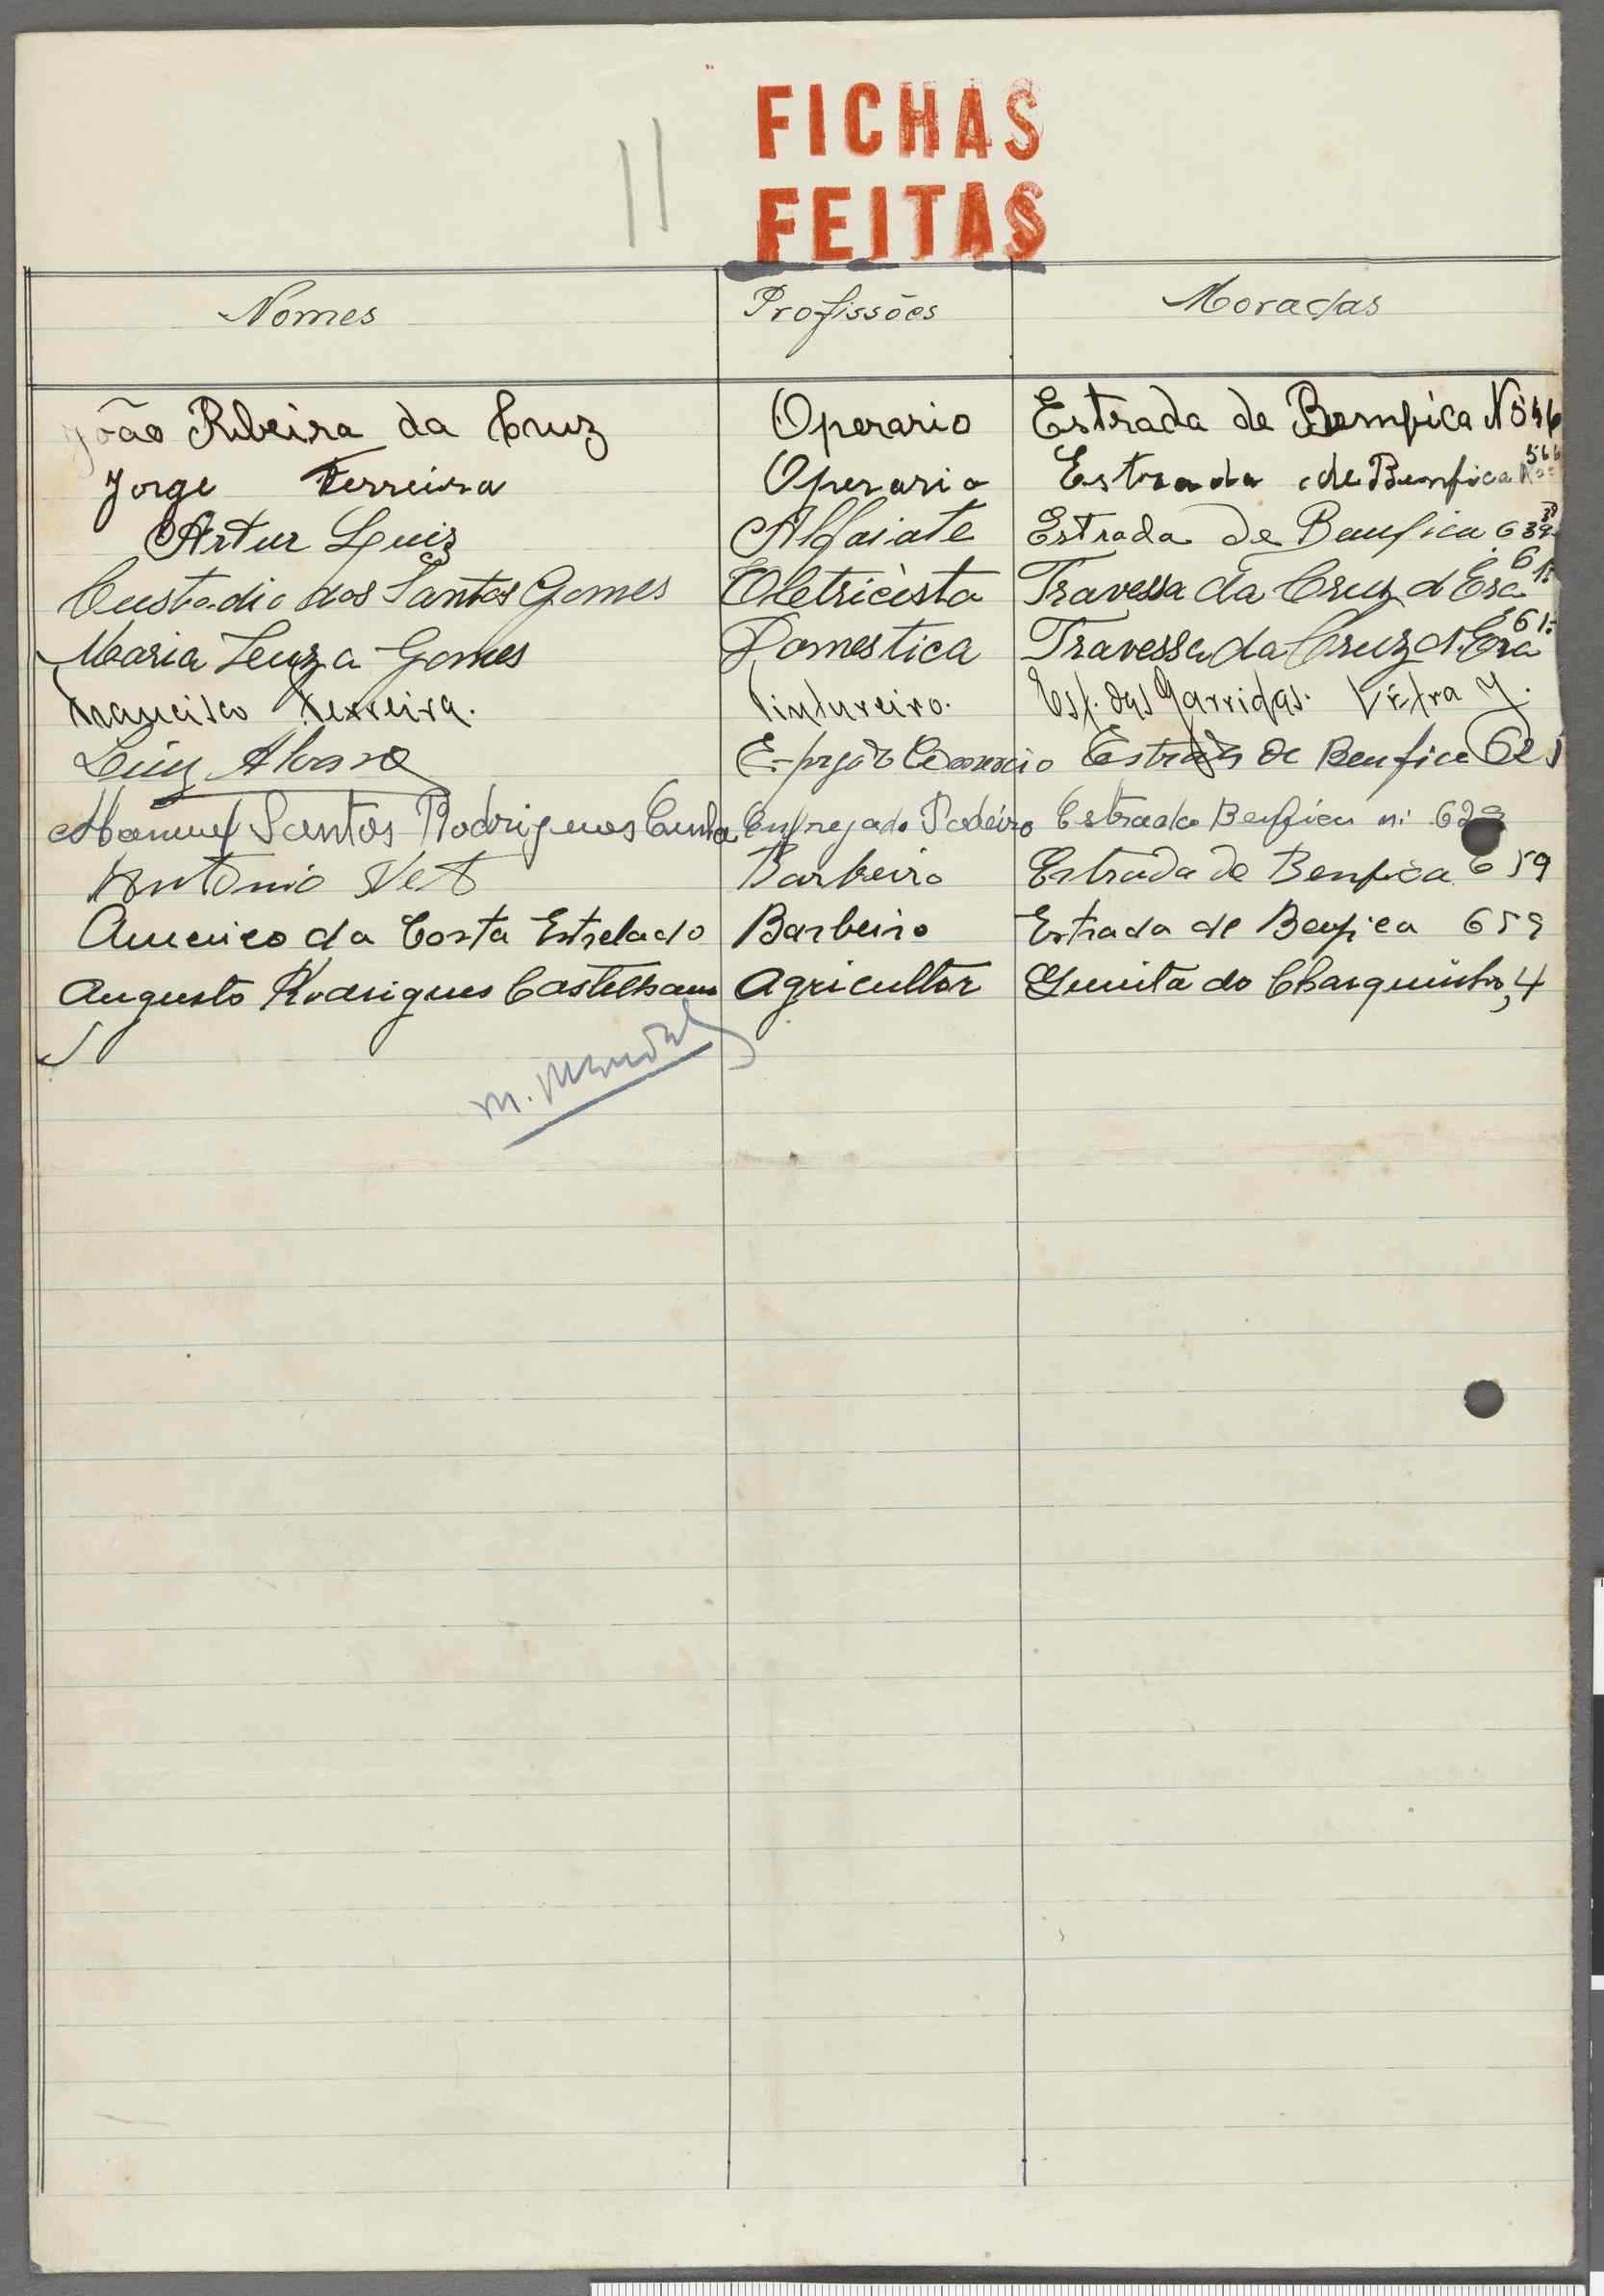 FICHAS
FEITAS
11
Nomes Profissões Moradas
João Ribeira da Cruz Operario Estrada de Bemfica Nº 546
Jorge Ferreira Operario Estrada de Benfica Nº 566
Artur Luiz Alfaiate Estrada de Benfica 639
Custodio dos Santos Gomes Eletricista Travessa da Cruz d Era 6
Maria Leuza Gomes Domestica Travessa da Cruz d. Era 6
Francisco Ferreira. Tintureiro. Est. das Garridas. Létra J.
Luiz Comercio Estrada de Benfica 621
Manuel Santos Rodrigues Cunha Empregado Padeiro Estrada Benfica nº 629
Antonio Barbeiro Estrada de Benfica 659
Americo da Costa Estrelado Barbeiro Estrada de Benfica 659
Augusto Rodrigues Castelhano Agricultor do Charquinho, 4
M.